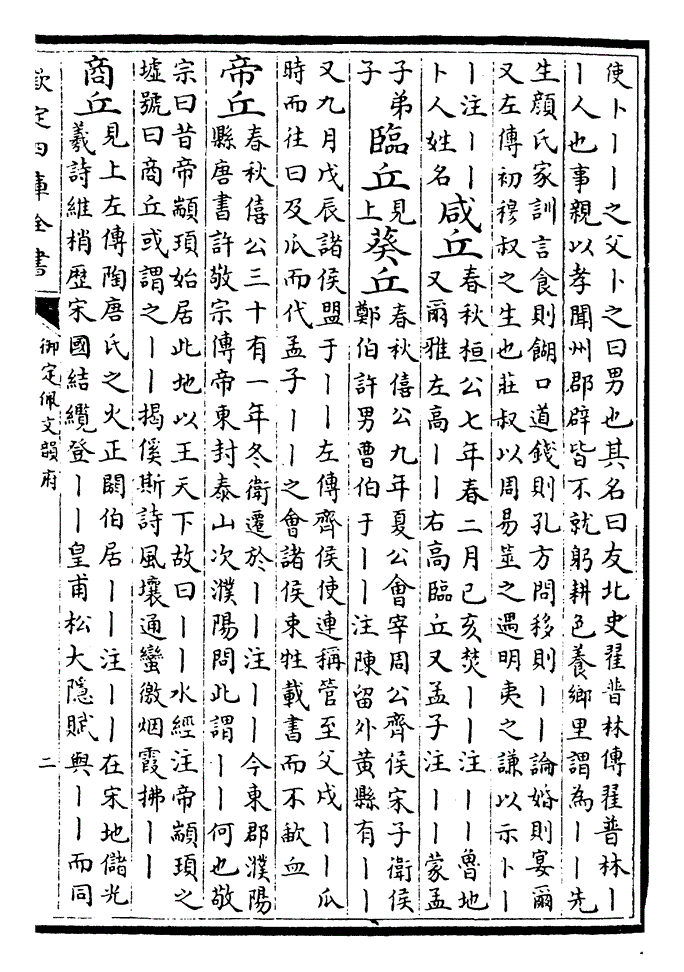 使卜丨丨之父卜之曰男也其名曰友北史翟普林傳翟普林丨
丨人也事親以孝聞州郡辟皆不就躬耕色養鄉里謂為丨丨先
生顔氏家訓言食則餬口道錢則孔方問移則丨丨論婚則宴爾
又左傳初穆叔之生也莊叔以周易筮之遇明夷之謙以示卜丨
丨注丨丨
卜人姓名
咸丘
春秋桓公七年春二月己亥焚丨丨注丨丨魯地
又爾雅左高丨丨右高臨丘又孟子注丨丨蒙孟
子弟
子
臨丘
見
上
葵丘
春秋僖公九年夏公會宰周公齊侯宋子衛侯
鄭伯許男曹伯于丨丨注陳留外黃縣有丨丨
又九月戊辰諸侯盟于丨丨左傳齊侯使連稱管至父戍丨丨瓜
時而往曰及瓜而代孟子丨丨之會諸侯束牲載書而不歃血
帝丘
春秋僖公三十有一年冬衛遷於丨丨注丨丨今東郡濮陽
縣唐書許敬宗傳帝東封泰山次濮陽問此謂丨丨何也敬
宗曰昔帝顓頊始居此地以王天下故曰丨丨水經注帝顓頊之
墟號曰商丘或謂之丨丨揭傒斯詩風壤通蠻徼烟霞拂丨丨
商丘
見上左傳陶唐氏之火正閼伯居丨丨注丨丨在宋地儲光
羲詩維梢歷宋國結纜登丨丨皇甫松大隱賦與丨丨而同
欽定四庫全書
御定佩文韻府
二